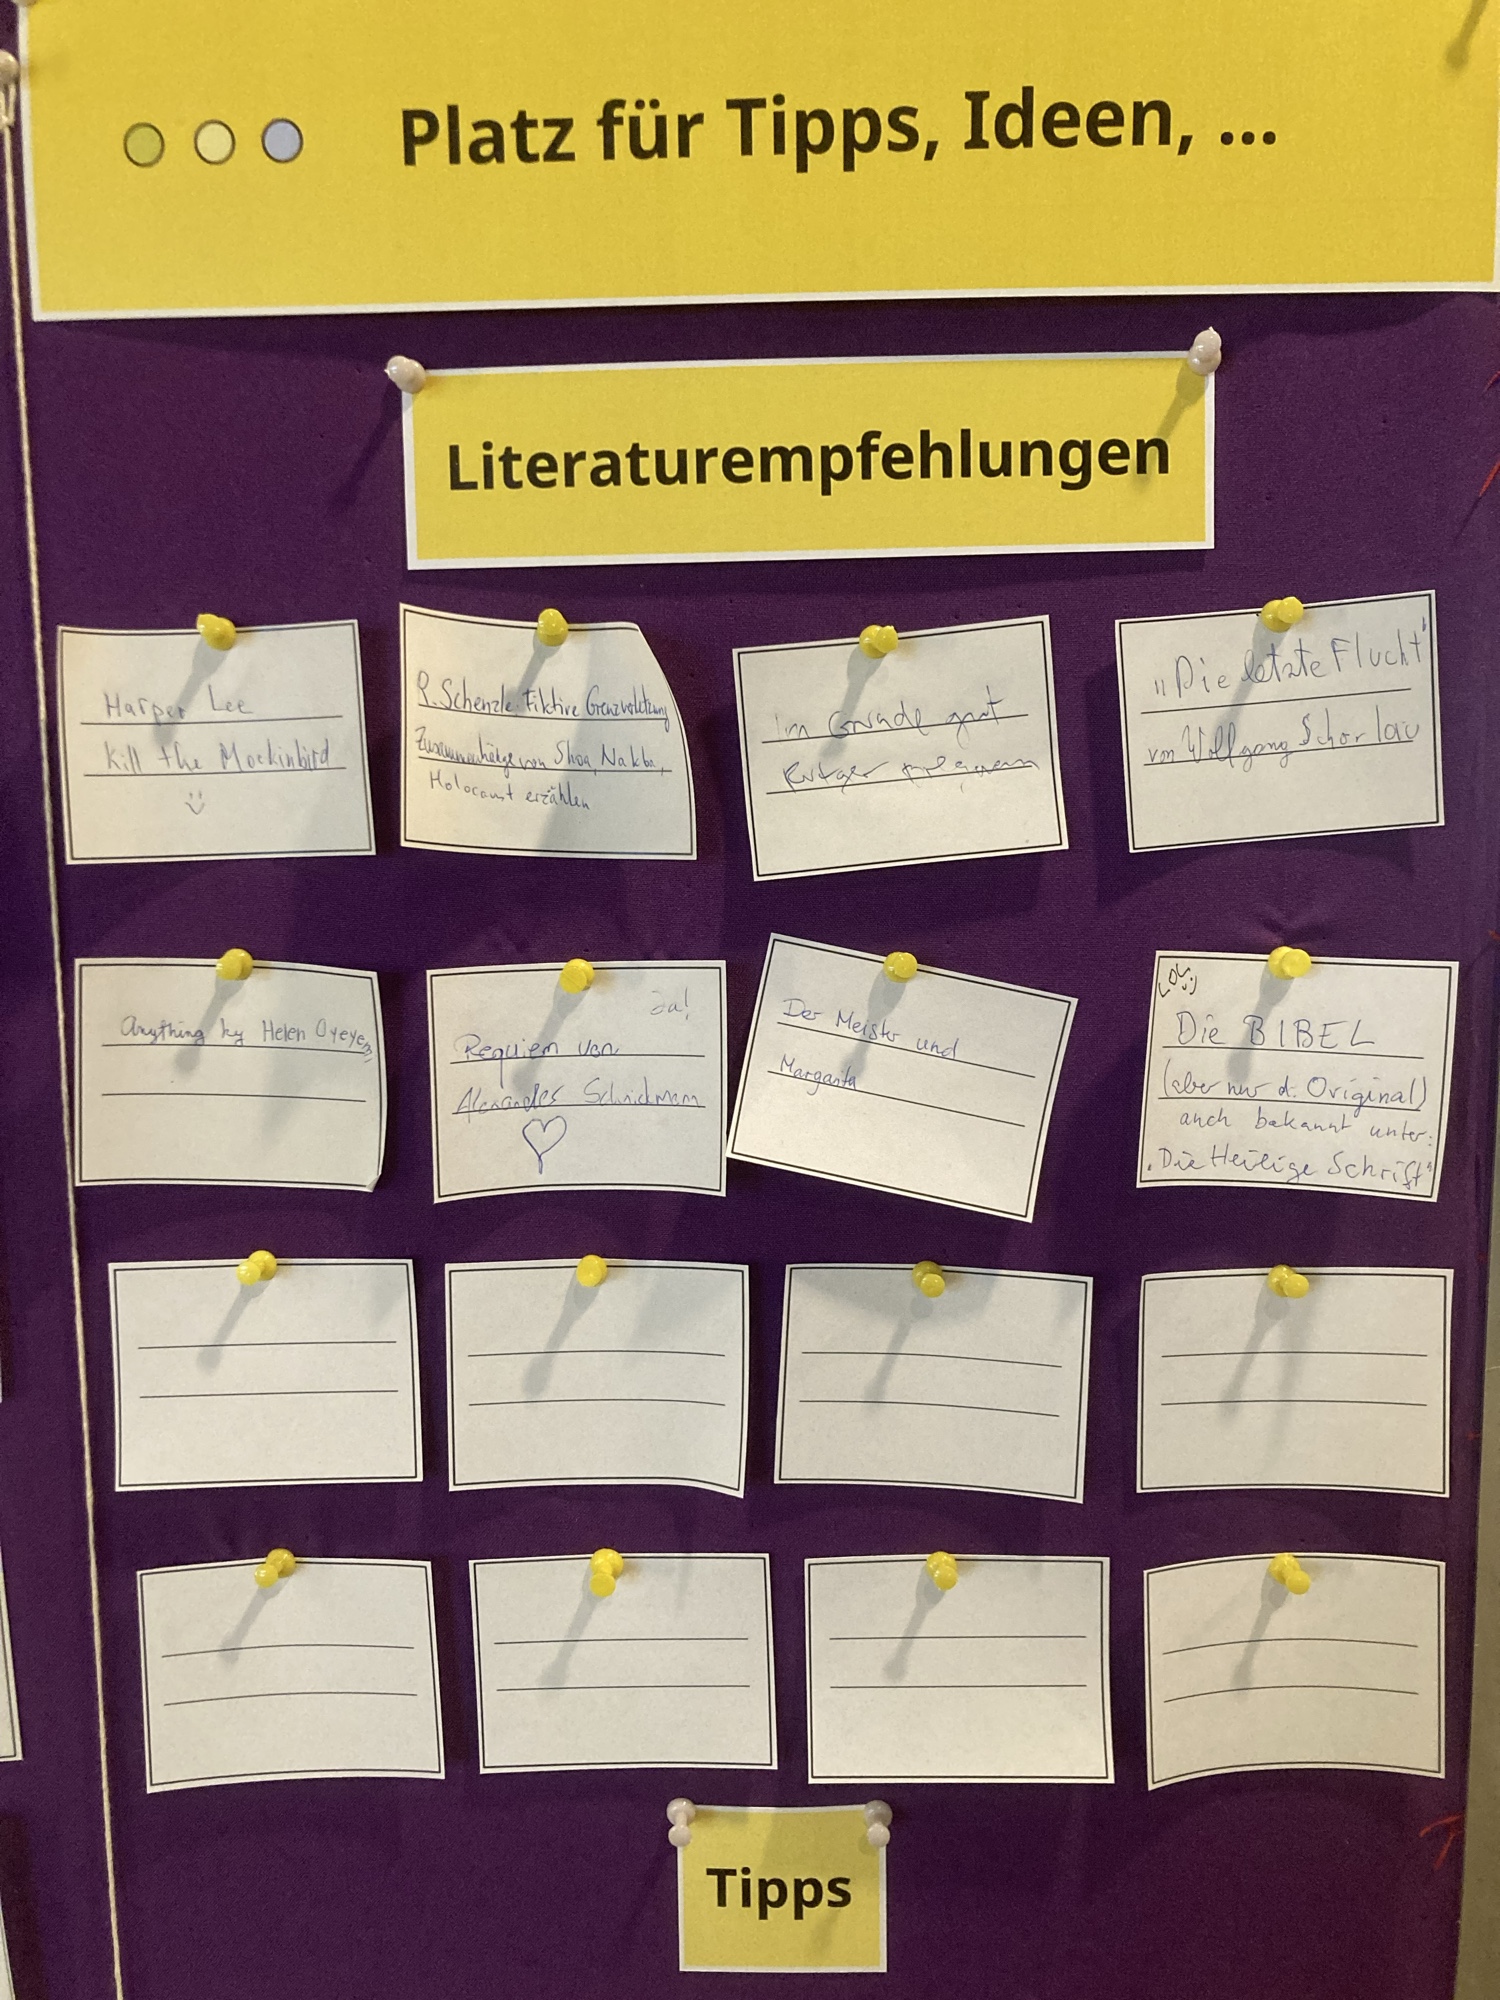 Platz für Tipps, Ideen, ...
Literaturempfehlungen
Harper Lee
Kill the Mockinbird
R. Schenzle: Fiktive Grenzverletzung
Zusammenhänge von Shoa, Nakba,
Holocaust erzählen
Im Grunde gut
Rutger
„Die letzte Flucht"
von Wolfgang Schorlau
Anything by Helen Oyeyemi
Ja!
Requiem von
Alexander
Der Meister und
Margarita
LOL :)
Die BIBEL
(aber nur d. Original)
auch bekannt unter:
"Die Heilige Schrift"
Tipps